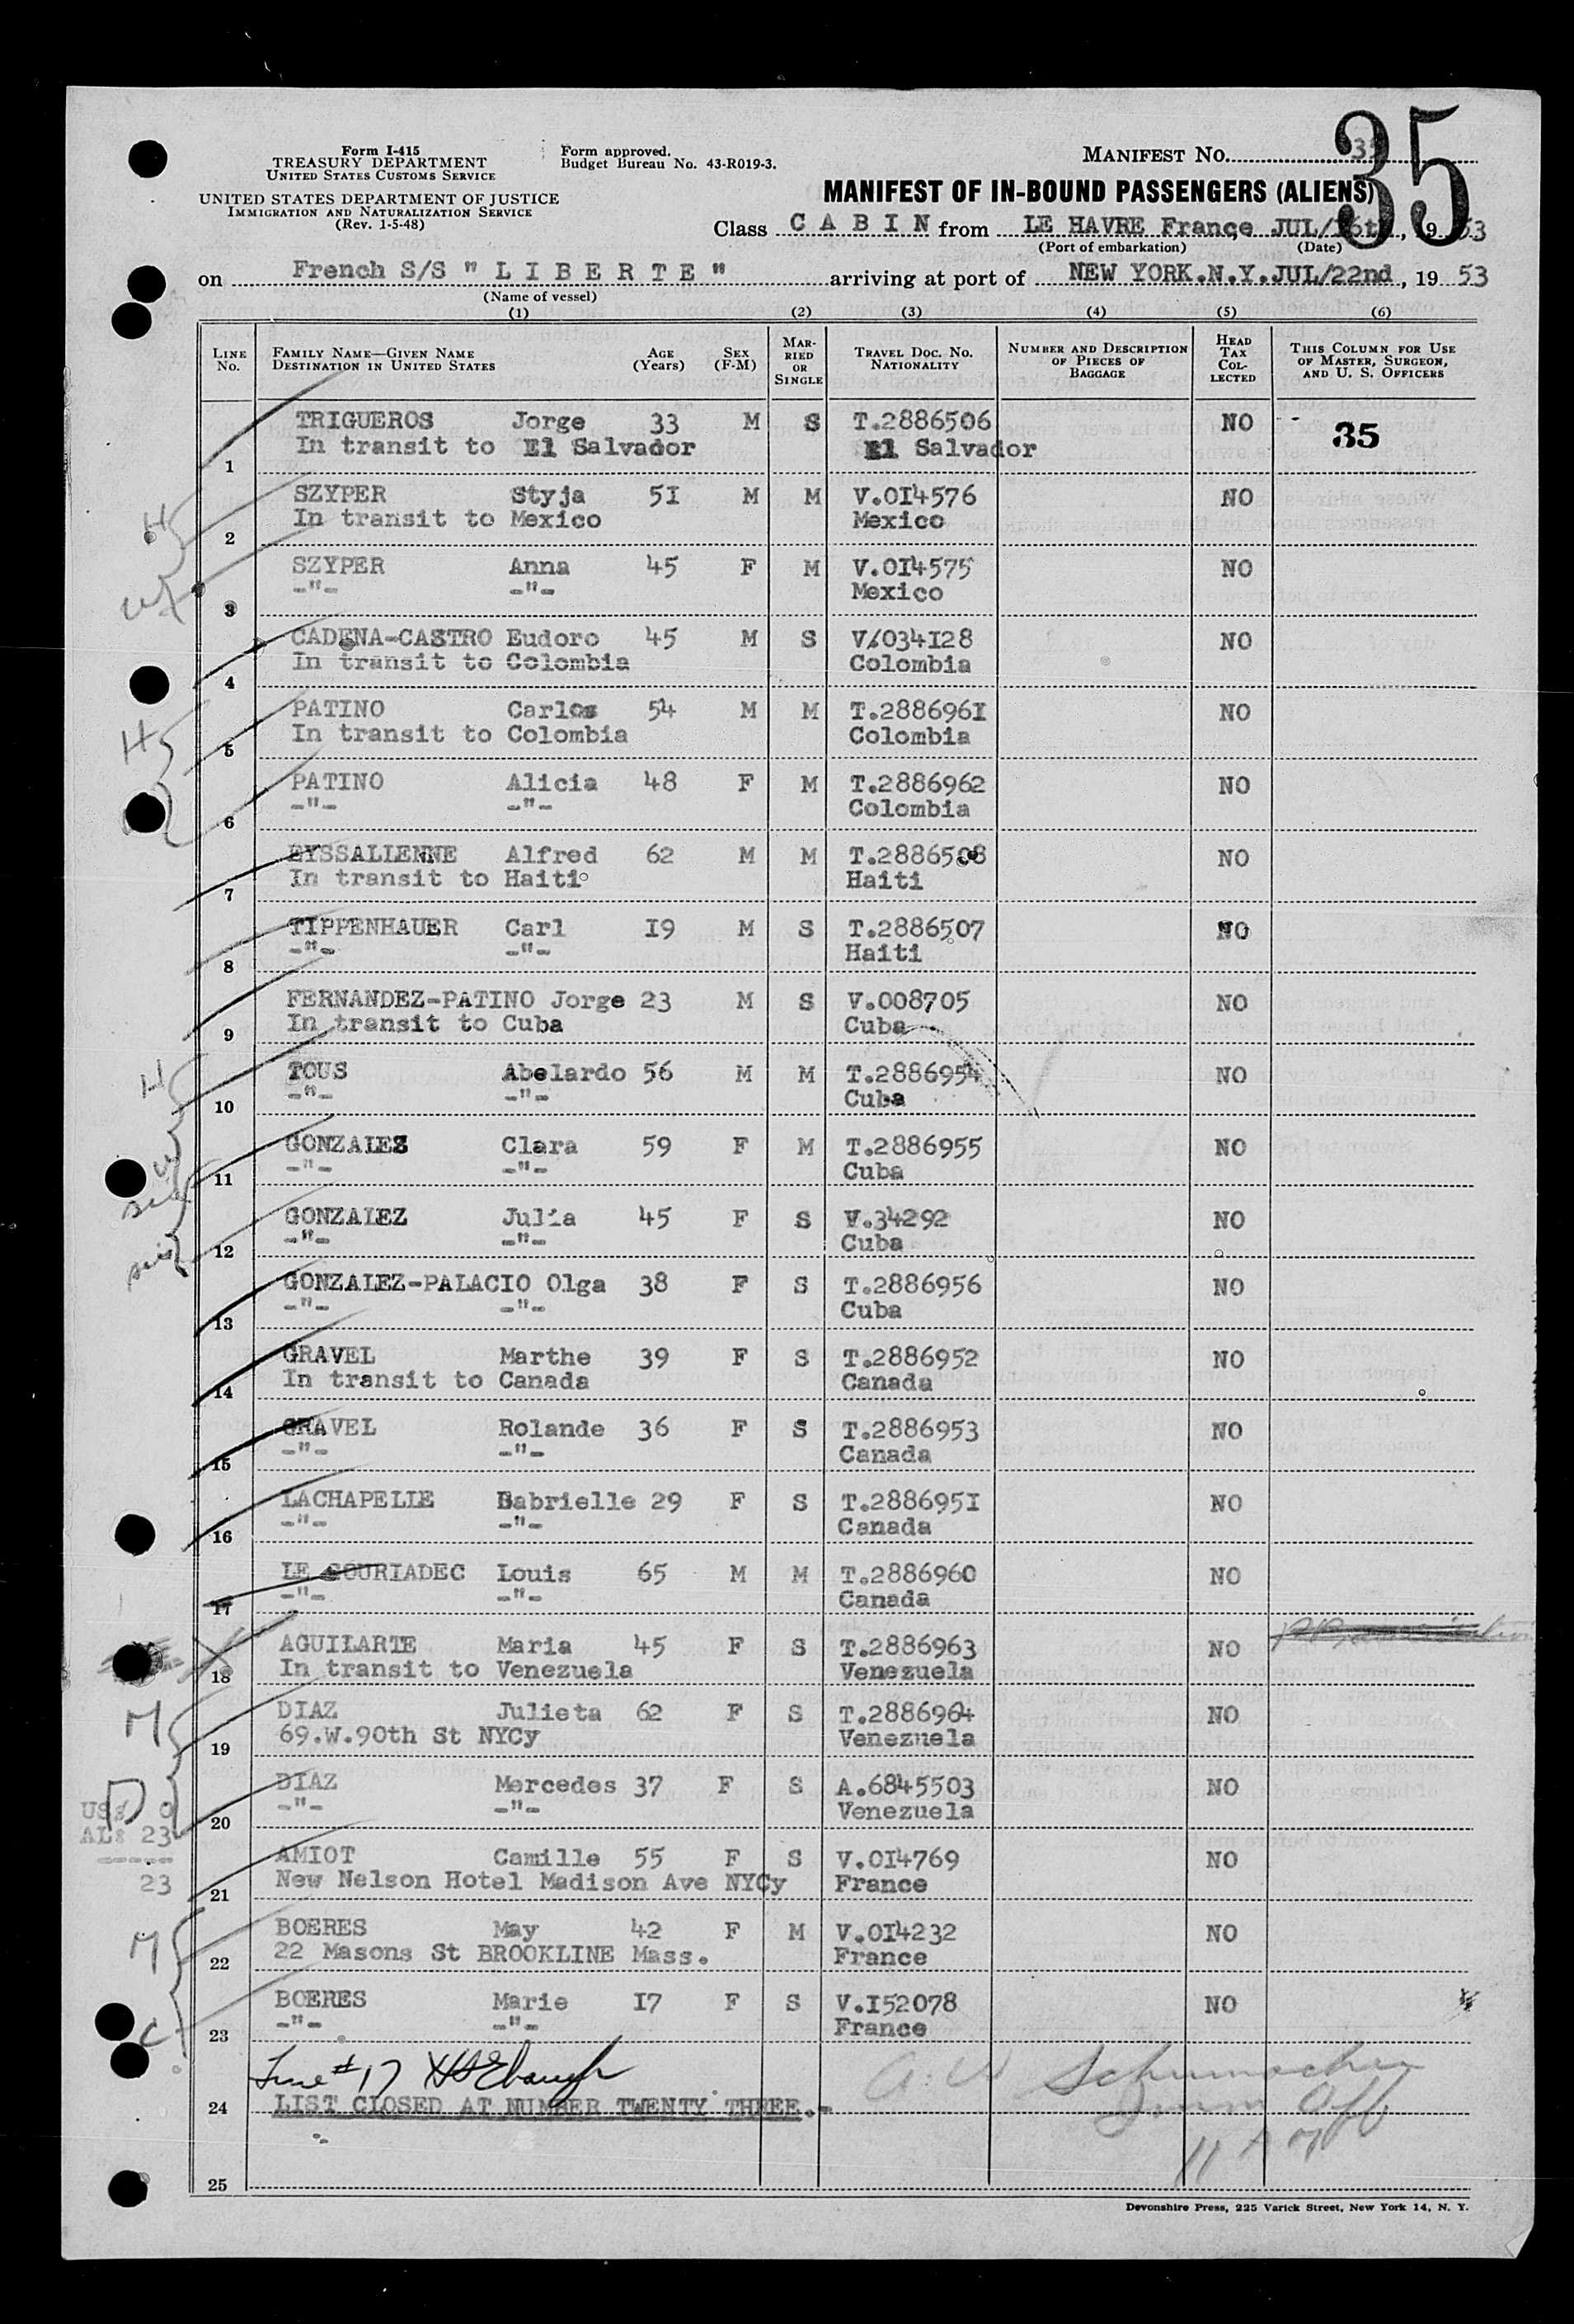 Form I-415
TREASURY DEPARTMENT
UNITED STATES CUSTOMS SERVICE
UNITED STATES DEPARTMENT OF JUSTICE
IMMIGRATION AND NATURALIZATION SERVICE
(Rev. 1-5-48)
Form approved.
Budget Bureau No. 43-R019-3.
35
MANIFEST NO.
MANIFEST OF IN-BOUND PASSENGERS (ALIENS)
Class C A B I N from LE HAVRE France JUL/16th, 1953
(Port of embarkation) (Date)
on French S/S " L I B E R T E " arriving at port of NEW YORK.N.Y.JUL/22nd, 1953
(Name of vessel)
(1) (2) (3) (4) (5) (6)
LINE NO. FAMILY NAME—GIVEN NAME DESTINATION IN UNITED STATES AGE (YEARS) SEX (F-M) MARRIED OR SINGLE TRAVEL DOC. NO. NATIONALITY NUMBER AND DESCRIPTION OF PIECES OF BAGGAGE HEAD TAX COLLECTED THIS COLUMN FOR USE OF MASTER, SURGEON, AND U. S. OFFICERS
TRIGUEROS Jorge 33 M S T.2886506 NO 35
1 In transit to El Salvador El Salvador
H SZYPER Styja 51 M M V.014576 NO
2 In transit to Mexico Mexico
SZYPER Anna 45 F M V.014575 NO
3 -"- -"- Mexico
CADENA-CASTRO Eudoro 45 M S V/034128 NO
4 In transit to Colombia Colombia
H PATINO Carlos 54 M M T.2886961 NO
5 In transit to Colombia Colombia
PATINO Alicia 48 F M T.2886962 NO
6 -"- -"- Colombia
EYSSALIENNE Alfred 62 M M T.2886508 NO
7 In transit to Haiti Haiti
TIPPENHAUER Carl 19 M S T.2886507 NO
8 -"- -"- Haiti
FERNANDEZ-PATINO Jorge 23 M S V.008705 NO
9 In transit to Cuba Cuba
H TOUS Abelardo 56 M M T.2886954 NO
10 -"- -"- Cuba
GONZALES Clara 59 F M T.2886955 NO
11 -"- -"- Cuba
GONZALEZ Julia 45 F S V.34292 NO
12 -"- -"- Cuba
GONZALEZ-PALACIO Olga 38 F S T.2886956 NO
13 -"- -"- Cuba
GRAVEL Marthe 39 F S T.2886952 NO
14 In transit to Canada Canada
GRAVEL Rolande 36 F S T.2886953 NO
15 -"- -"- Canada
LACHAPELLE Gabrielle 29 F S T.2886951 NO
16 -"- -"- Canada
LE GOURIADEC Louis 65 M M T.2886960 NO
17 -"- -"- Canada
AGUILARTE Maria 45 F S T.2886963 NO
18 In transit to Venezuela Venezuela
M DIAZ Julieta 62 F S T.2886964 NO
19 69.W.90th St NYCy Venezuela
D DIAZ Mercedes 37 F S A.6845503 NO
US: 0
20 -"- -"- Venezuela
AL: 23
-----
23
AMIOT Camille 55 F S V.014769 NO
21 New Nelson Hotel Madison Ave NYCy France
M BOERES May 42 F M V.014232 NO
22 22 Masons St BROOKLINE Mass. France
BOERES Marie 17 F S V.152078 NO
C 23 -"- -"- France
Line #17
A. W Schumacher
24 LIST CLOSED AT NUMBER TWENTY THREE.- Imm Off
25
Devonshire Press, 225 Varick Street, New York 14, N. Y.